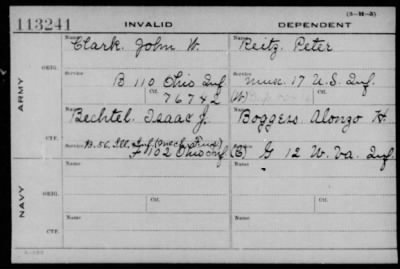 113241 INVALID DEPENDENT (3-M-3)
Name Name
Clark, John W. Reitz, Peter
ARMY
ORIG.
Service Ctf. Service Ctf.
B 110 Ohio Inf. Musc. 17 U.S. Inf.
76742 (W)
Name Name
Bechtel, Isaac J. Boggess, Alonzo H
CTF.
Service Service
B. 56, Ill. Inf (Mech. Fus.)
F 102 Ohio Inf (C) G 12 W. Va. Inf.
Name Name
NAVY
ORIG.
Ctf. Ctf.
Name Name
CTF.